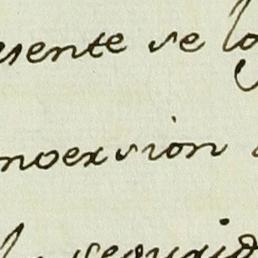 esente se lo
noexsion
segurid